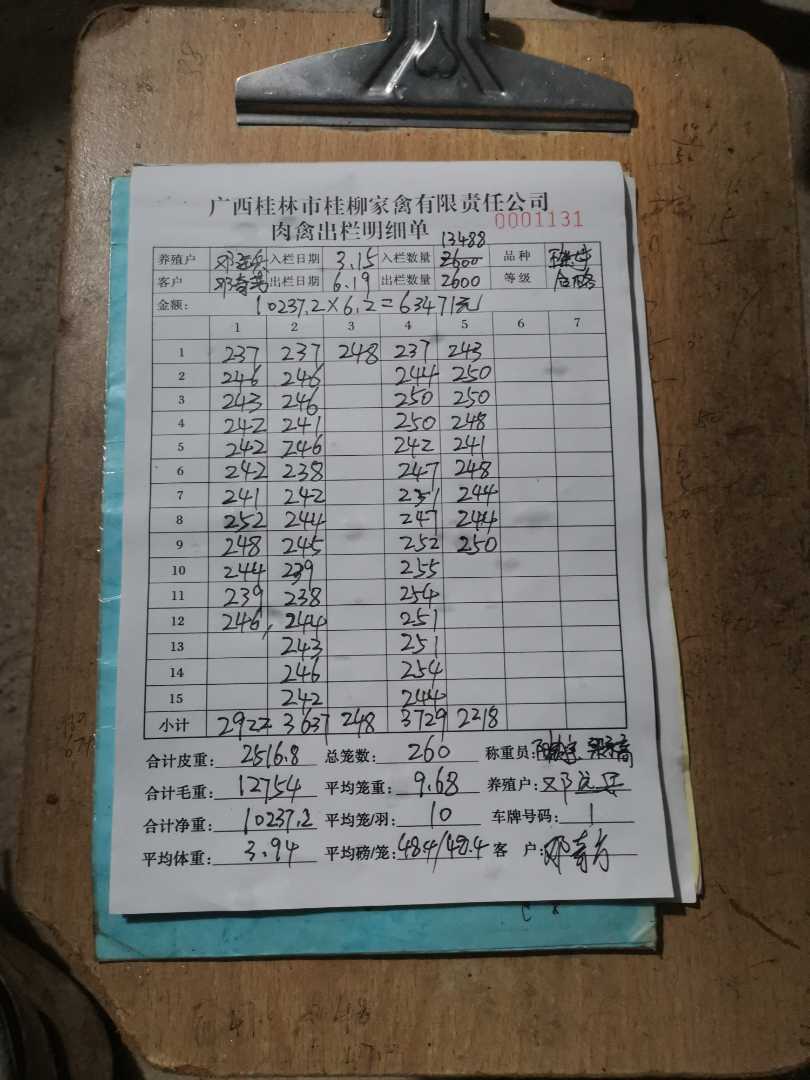 广西桂林市桂柳家禽有限责任公司
肉禽出栏明细单 0001131
13488
养殖户 入栏日期 3.15 入栏数量 2600 品种
客户 邓奇芳 出栏日期 6.19 出栏数量 2600 等级 合格
金额: 10237.2×6.2=63471元
1 2 3 4 5 6 7
1 237 237 248 237 243
2 246 246 244 250
3 243 246 250 250
4 242 241 250 248
5 242 246 242 241
6 242 238 247 248
7 241 242 251 244
8 252 244 247 244
9 248 245 252 250
10 244 239 255
11 239 238 254
12 246 244 251
13 243 251
14 246 254
15 242 244
小计 2922 3637 248 3729 2218
合计皮重: 2516.8 总笼数: 260 称重员:
合计毛重: 12754 平均笼重: 9.68 养殖户:
合计净重: 10237.2 平均笼/羽: 10 车牌号码: 1
平均体重: 3.94 平均磅/笼: 484/48.4 客 户: 邓奇方